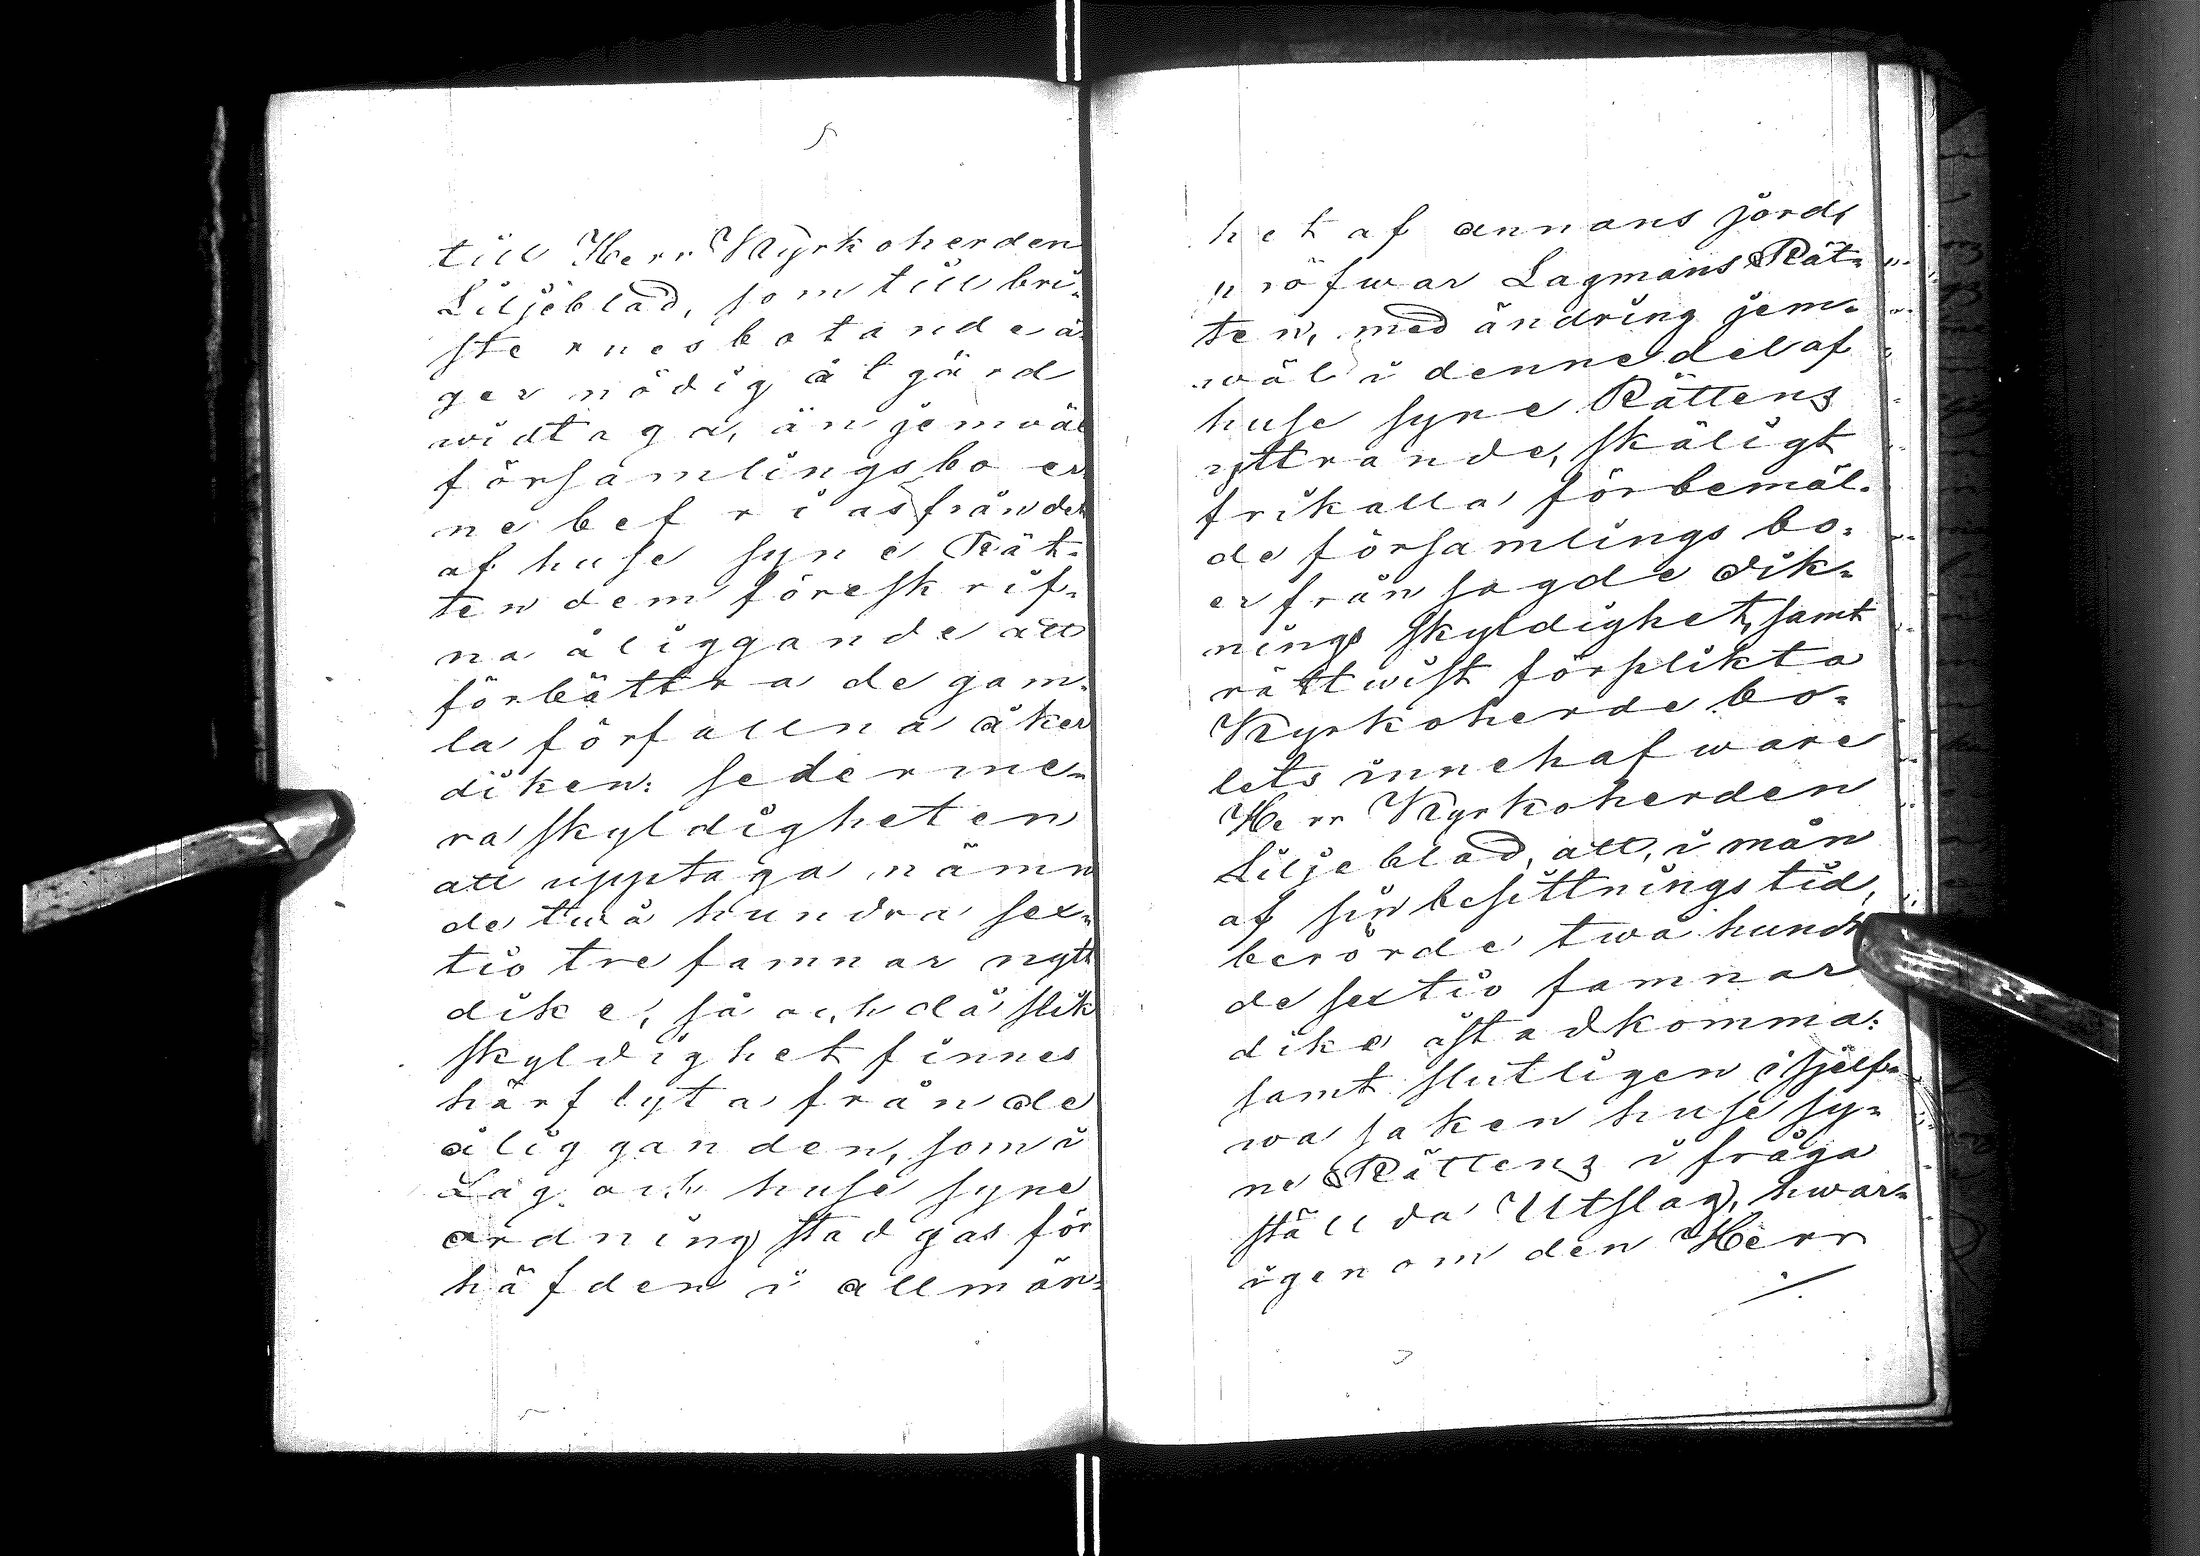 till Herr Kyrkoherden
Liljeblad, som till bri-
sternes botande ä-
ger nödig åtgärd
widtaga, än jemwäl
församlingsboer-
ne befrias från det
af huse syne Rät-
ten dem föreskrif-
na åliggande att
förbättra de gam-
la förfallna åker
diken: sederme-
ra skyldigheten
att upptaga nämn
de twå hundra sex-
tio tre famnar nytt
dike, så och då slik
skyldighet finnes
härflyta från de
åligganden, som i
Lag och huse syne
ordning stadgas för
häfden i allmän-
het af annans jord,
pröfwar Lagmans Rät-
ten, med ändring jem-
wäl i denne del af
huse syne Rättens
yttrande, skäligt
frikalla förbemäl-
de församlings bo-
er från sagde dik-
nings skyldighet, samt
rättwist förplikta
Kyrkoherde bo-
lets innehafware
Herr Kyrkoherden
Liljeblad, att, i mån
af sin besittningstid,
berörde twå hundra
de sextio famnar
dike åstadkomma:
samt slutligen i sjelf-
wa saken huse sy-
ne Rättens i fråga
ställda Utslag, hwar-
igenom den Herr